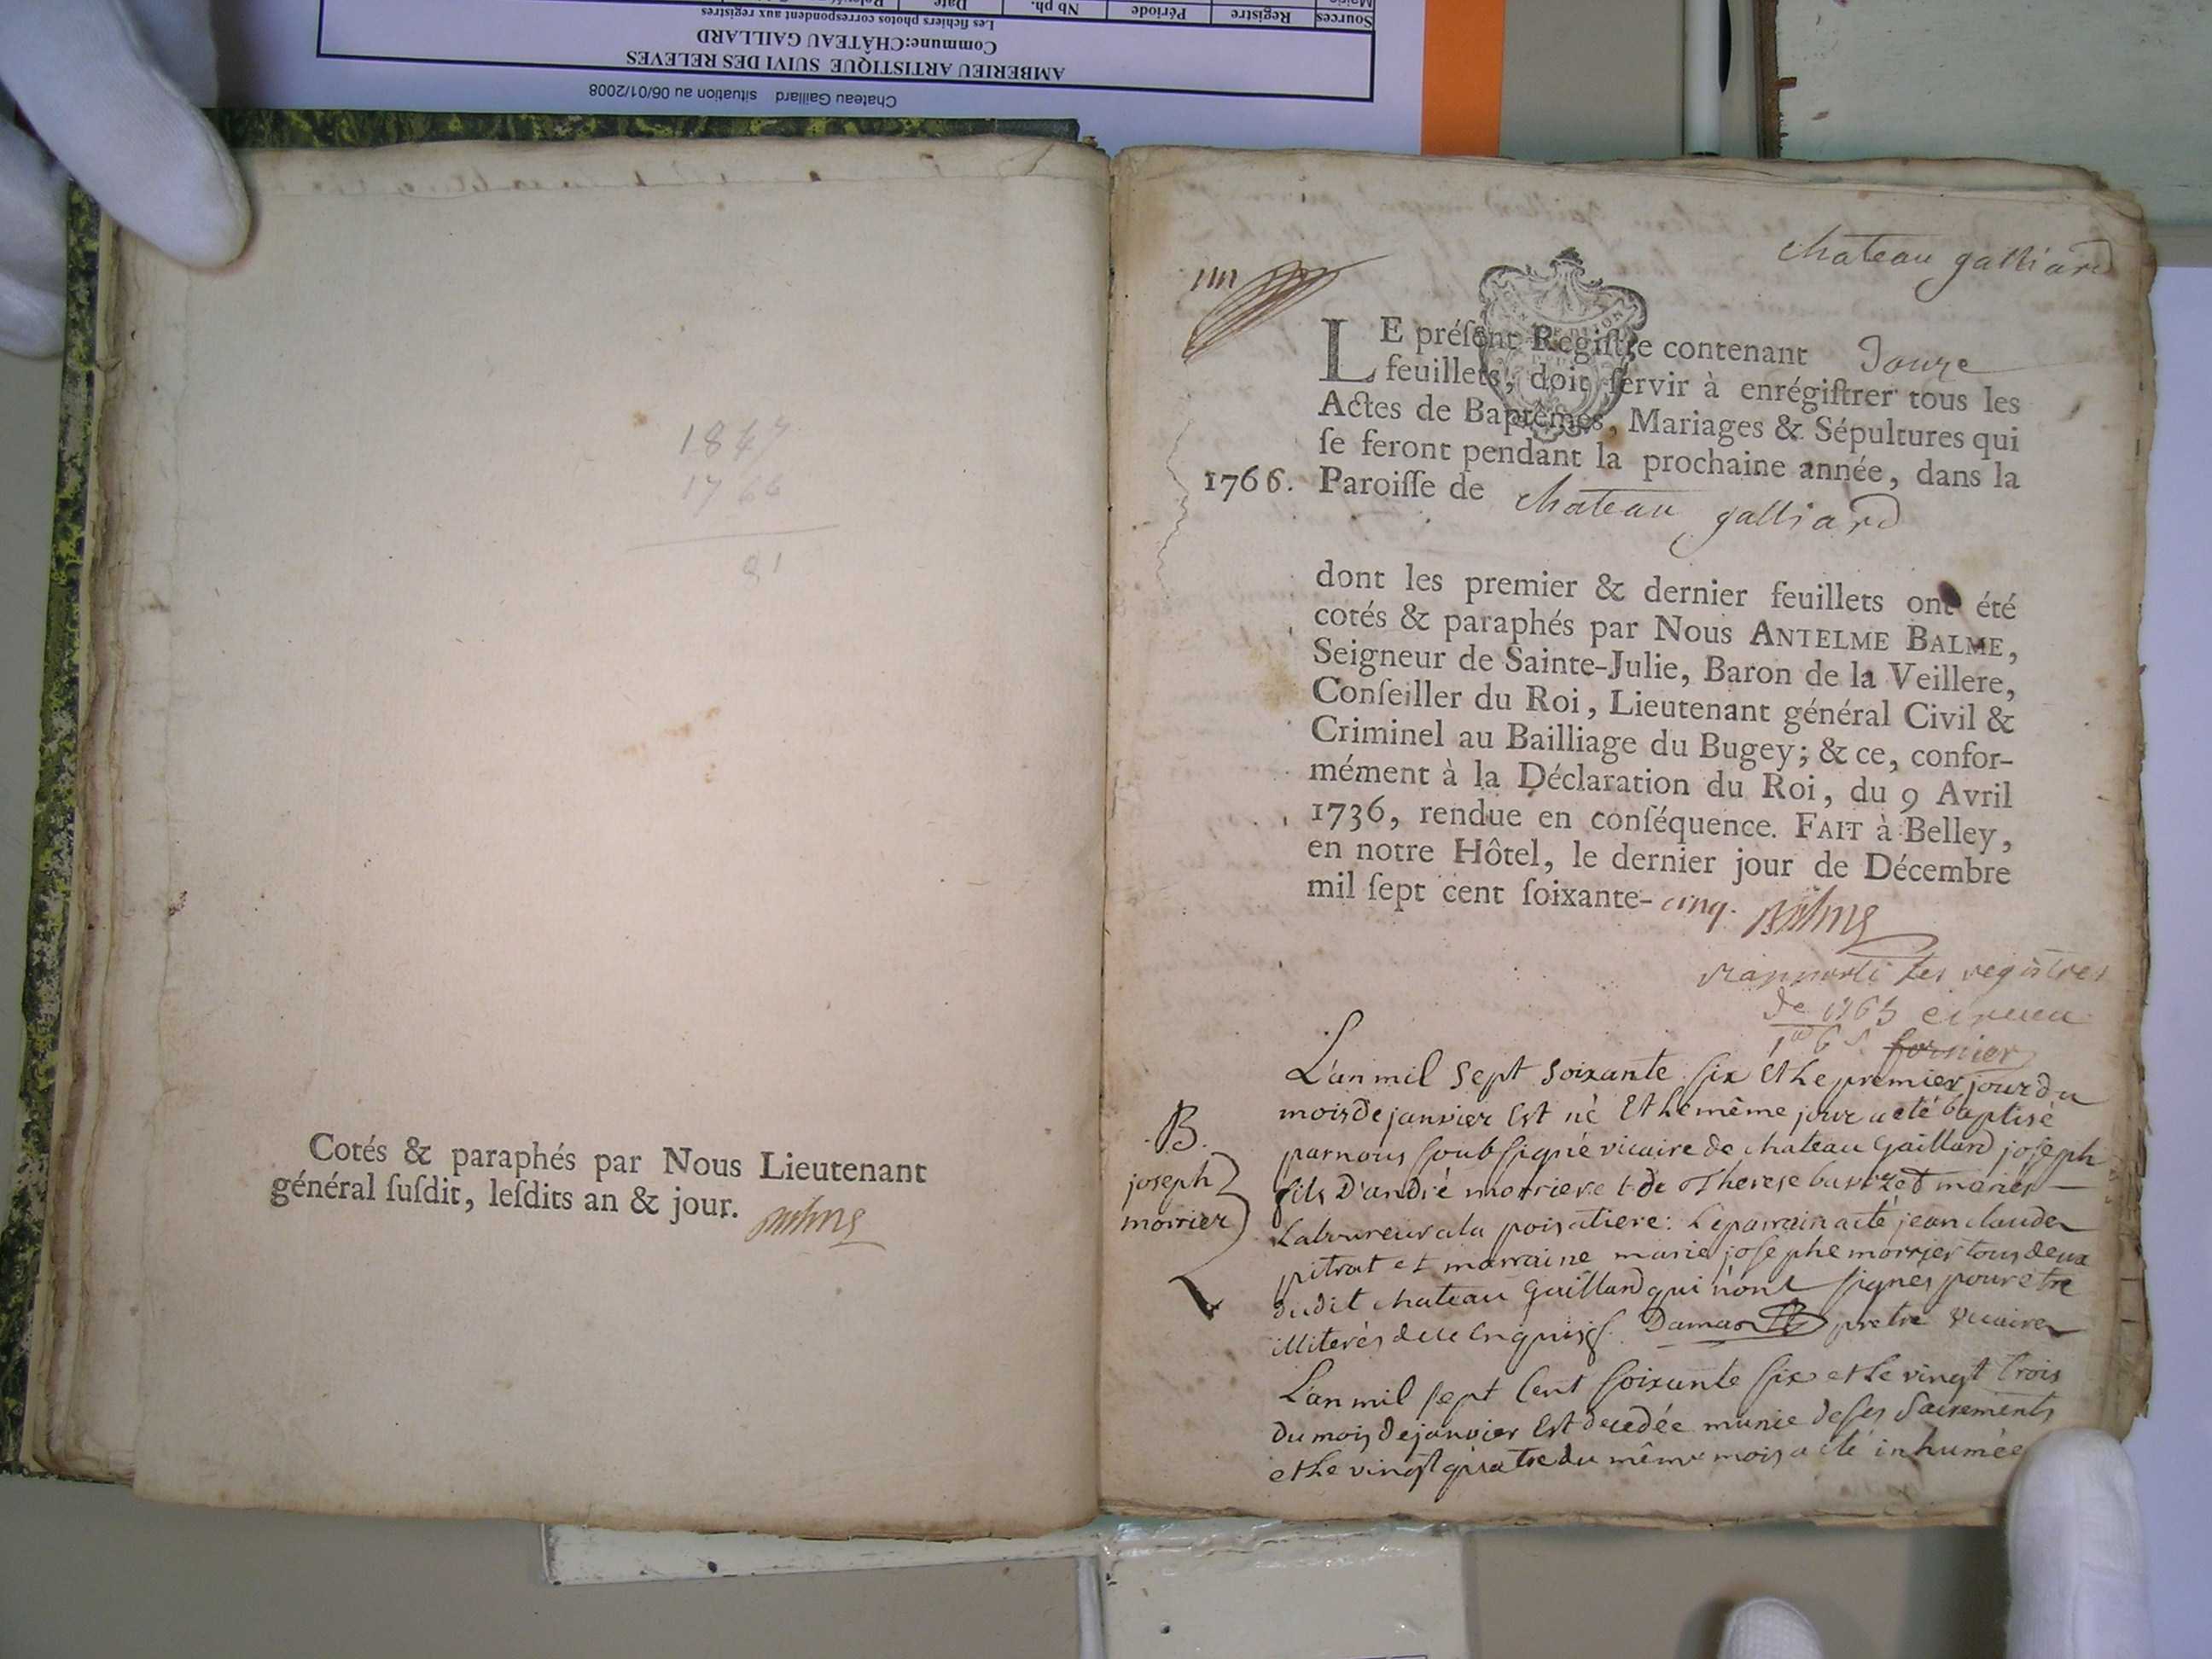 Sources Registre Période Nb ph. Date
Les fichiers photos correspondent aux registres
Commune:CHÂTEAU GAILLARD
AMBERIEU ARTISTIQUE SUIVI DES RELEVES
Chateau Gaillard situation au 06/01/2008
1847
1766
81
Cotés & paraphés par Nous Lieutenant
général ſuſdit, leſdits an & jour. Balme
chateau galliard
LE préſent Regiſtre contenant Douze
feuillets, doit ſervir à enrégiſtrer tous les
Actes de Baptêmes, Mariages & Sépultures qui
ſe feront pendant la prochaine année, dans la
1766. Paroiſſe de chateau galliard
dont les premier & dernier feuillets ont été
cotés & paraphés par Nous ANTELME BALME,
Seigneur de Sainte-Julie, Baron de la Veillere,
Conſeiller du Roi, Lieutenant général Civil &
Criminel au Bailliage du Bugey; & ce, confor-
mément à la Déclaration du Roi, du 9 Avril
1736, rendue en conſéquence. FAIT à Belley,
en notre Hôtel, le dernier jour de Décembre
mil ſept cent ſoixante- cinq. Balme
les registres
de 1765
L'an mil sept soixante six et le premier jour du
mois de janvier est né et le même jour a eté baptisé
B. par nous soubsigné vicaire de chateau gaillard joseph
joseph fils d'andré morrier et de Therese mariés
morrier Laboureur a la poisatiere: Le parrain a eté jean claude
pitrat et marraine marie josephe morrier tous deux
dudit chateau gaillard qui n'ont signes pour etre
illiterés de ce enquis Damas pretre vicaire
L'an mil sept cent soixante six et le vingt trois
du mois de janvier est decedée munie de ses sacrements
et le vingt quatre du même mois a eté inhumée